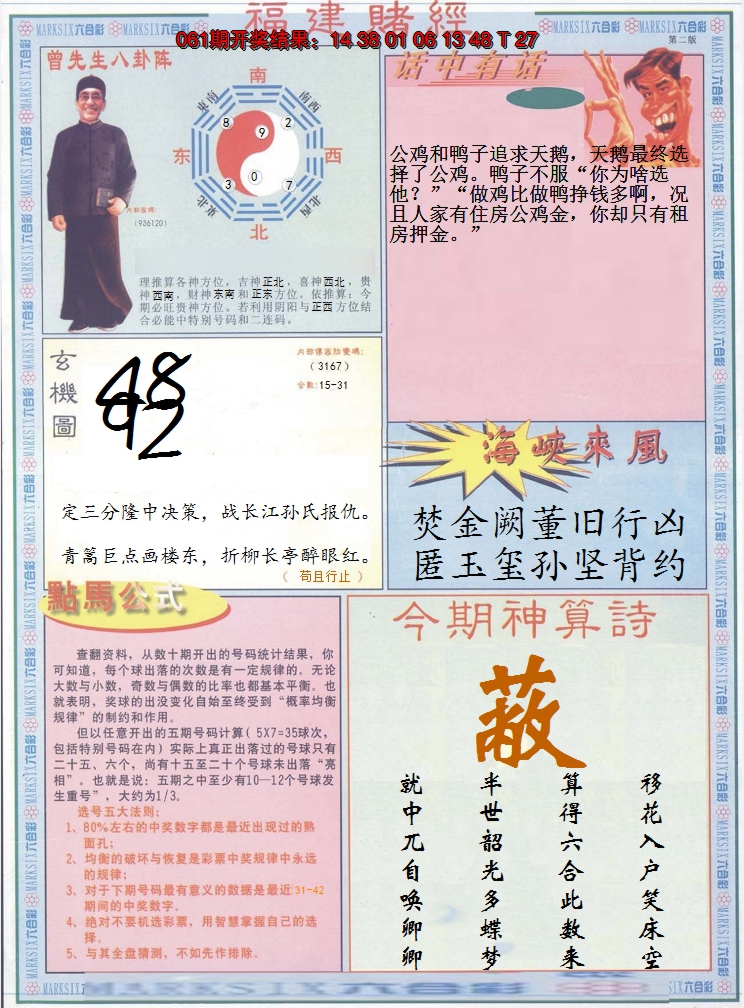 福建賭經
061期开奖结果：14 38 01 06 13 48 T 27
MARKSIX六合彩
第二版
曾先生八卦阵
南
东南
南西
8
9
2
东
西
3
0
7
東北
北西
北
内部密碼:
(936120)
理推算各神方位，吉神正北，喜神西北，贵
神西南，财神东南和正东方位。依推算：今
期必旺贵神方位。若利用阴阳与正西方位结
合必能中特别号码和二连码。
话中有话
公鸡和鸭子追求天鹅，天鹅最终选
择了公鸡。鸭子不服“你为啥选
他？”“做鸡比做鸭挣钱多啊，况
且人家有住房公鸡金，你却只有租
房押金。”
玄機圖
48
92
内部傳密防變碼:
(3167)
合数:15-31
定三分隆中决策，战长江孙氏报仇。
青蒿巨点画楼东，折柳长亭醉眼红。
（ 苟且行止 ）
海峽來風
焚金阙董旧行凶
匿玉玺孙坚背约
點馬公式
查翻资料，从数十期开出的号码统计结果，你
可知道，每个球出落的次数是有一定规律的。无论
大数与小数，奇数与偶数的比率也都基本平衡。也
就表明，奖球的出没变化自始至终受到“概率均衡
规律”的制约和作用。
但以任意开出的五期号码计算（5X7=35球次，
包括特别号码在内）实际上真正出落过的号球只有
二十五、六个，尚有十五至二十个号球未出落“亮
相”。也就是说：五期之中至少有10—12个号球发
生重号”，大约为1/3。
选号五大法则：
1、80%左右的中奖数字都是最近出现过的熟
面孔；
2、均衡的破坏与恢复是彩票中奖规律中永远
的规律；
3、对于下期号码最有意义的数据是最近31-42
期间的中奖数字。
4、绝对不要机选彩票，用智慧掌握自己的选
择。
5、与其全盘猜测，不如先作排除。
今期神算詩
蔽
移花入户笑床空
算得六合此数来
半世韶光多蝶梦
就中兀自唤卿卿